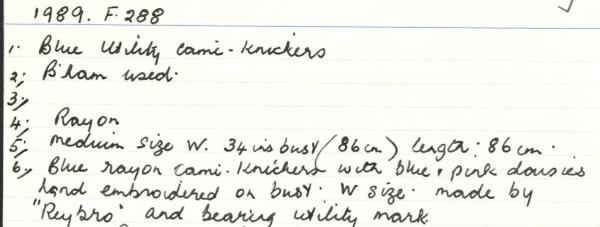 1989. F. 288
1. Blue Utility cami-knickers
2. B'ham used.
3.
4. Rayon
5. medium size W. 34 ins bust (86cm) length: 86cm.
6. Blue rayon cami-knickers with blue & pink daisies
hand embroidered on bust. W size. made by
"Reybro" and bearing utility mark.